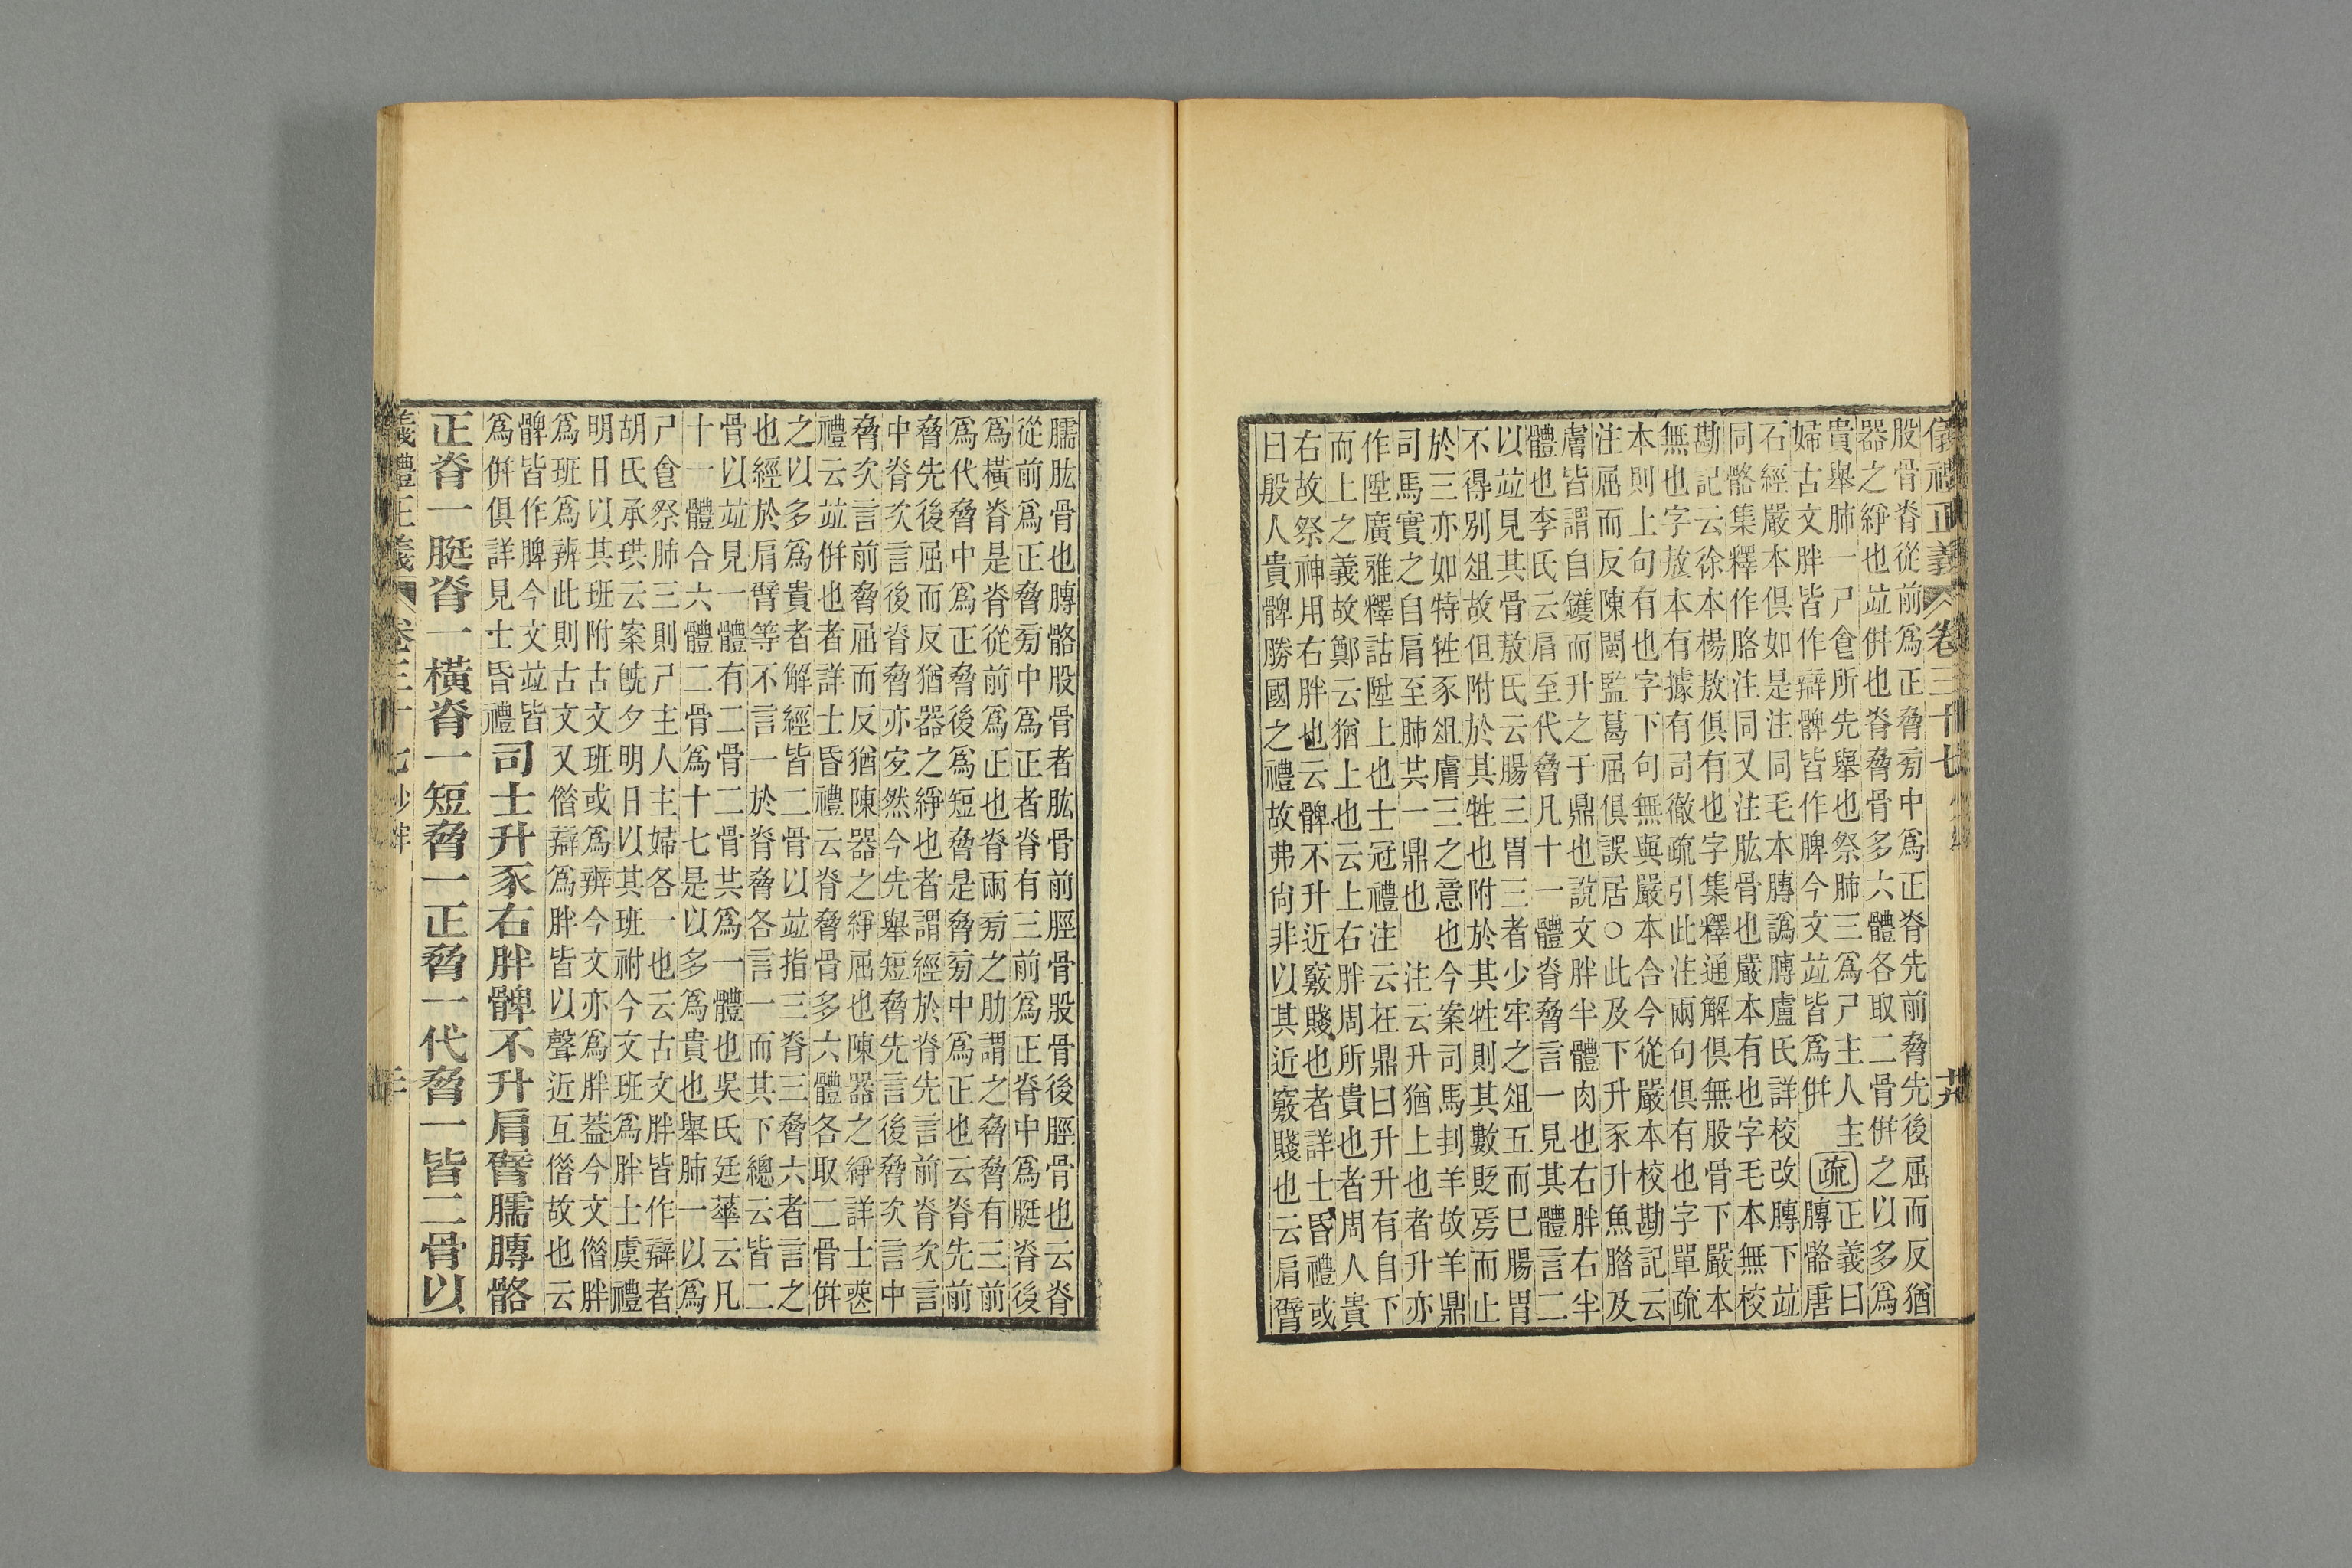 儀禮正義 卷三十七 少牢 廿九
股骨脊從前爲正脅㫄中爲正脊先前脅先後屈而反猶
器之綪也竝併也脊脅骨多六體各取二骨併之以多爲
貴舉肺一尸食所先舉也祭肺三爲尸主人主
婦古文胖皆作辯髀皆作脾今文竝皆爲併
疏
正義曰
膞骼唐
石經嚴本俱如是注同毛本膞譌䏝盧氏詳校改膞下竝
同骼集釋作胳注同又注肱骨也嚴本有也字毛本無校
勘記云徐本楊敖俱有也字集釋通解俱無股骨下嚴本
無也字敖本有據有司徹疏引此注兩句俱有也字單疏
本則上句有也字下句無與嚴本合今從嚴本校勘記云
注屈而反陳閩監葛屈俱誤居○此及下升豕升魚腊及
膚皆謂自鑊而升之于鼎也說文胖半體肉也右胖右半
體也李氏云肩至代脅凡十一體脊脅言一見其體言二
以竝見其骨敖氏云腸三胃三者少牢之俎五而已腸胃
不得別俎故但附於其牲也附於其牲則其數貶焉而止
於三亦如特牲豕俎膚三之意也今案司馬刲羊故羊鼎
司馬實之自肩至肺共一鼎也 注云升猶上也者升亦
作陞廣雅釋詁陞上也士冠禮注云在鼎曰升升有自下
而上之義故鄭云猶上也云上右胖周所貴也者周人貴
右故祭神用右胖也云髀不升近竅賤也者詳士昏禮或
曰殷人貴髀勝國之禮故弗尙非以其近竅賤也云肩臂
臑肱骨也膞骼股骨者肱骨前脛骨股骨後脛骨也云脊
從前爲正脅㫄中爲正者脊有三前爲正脊中爲脡脊後
爲橫脊是脊從前爲正也脊兩㫄之肋謂之脅脅有三前
爲代脅中爲正脅後爲短脅是脅㫄中爲正也云脊先前
脅先後屈而反猶器之綪也者謂經於脊先言前脊次言
中脊次言後脊脅亦宜然今先舉短脅先言後脅次言中
脅次言前脅屈而反猶陳器之綪屈也陳器之綪詳士䘮
禮云竝併也者詳士昏禮云脊脅骨多六體各取二骨併
之以多爲貴者解經皆二骨以竝指三脊三脅六者言之
也經於肩臂等不言一於脊脅各言一而其下總云皆二
骨以竝見一體有二骨二骨共爲一體也吳氏廷華云凡
十一體合六體二骨爲十七是以多爲貴也舉肺一以爲
尸食祭肺三則尸主人主婦各一也云古文胖皆作辯者
胡氏承珙云案旣夕明日以其班祔今文班爲胖士虞禮
明日以其班附古文班或爲辨今文亦爲胖葢今文偺胖
爲班爲辨此則古文又偺辯爲胖皆以聲近互偺故也云
髀皆作脾今文竝皆
爲併俱詳見士昏禮
司士升豕右胖髀不升肩臂臑膞骼
正脊一脡脊一橫脊一短脅一正脅一代脅一皆二骨以
禮正義 卷三十七 少牢 三十